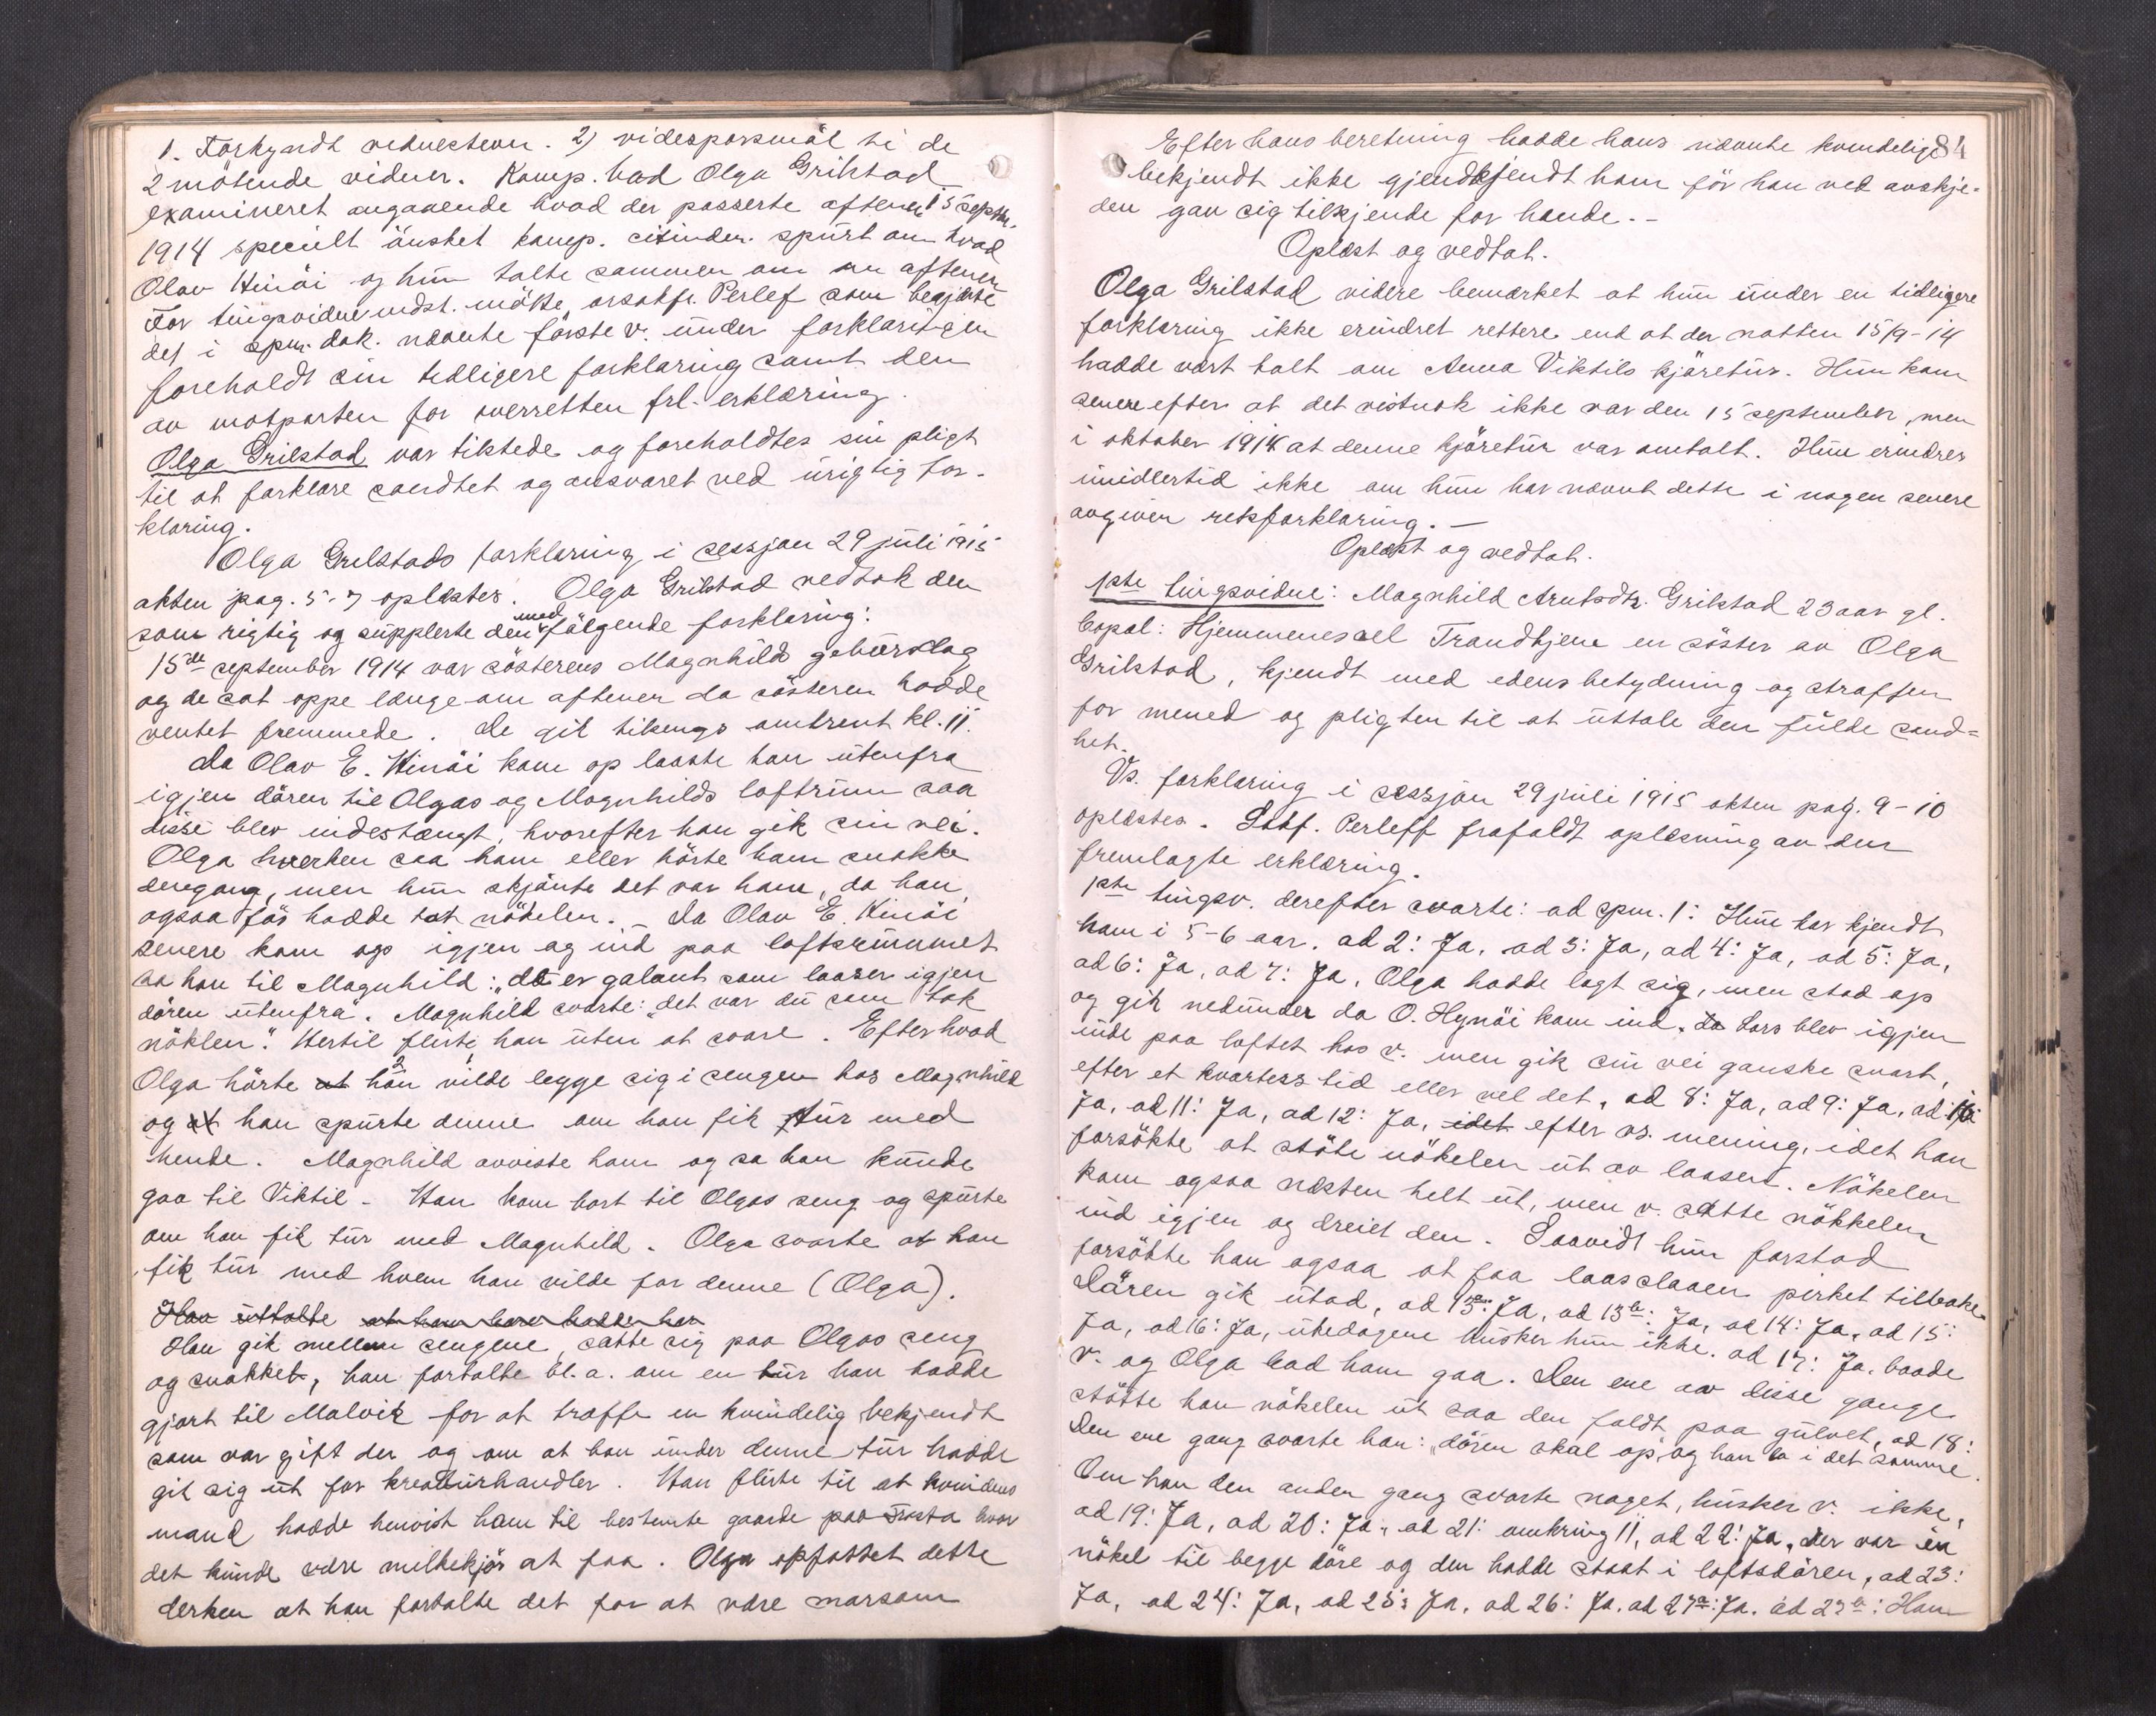 1. Forkyndt vidnestevn. 2) videspörsmål ti de
2 mötende vidner. Komp. bad Olga Grilstad
examineret angaaende hvad der passerte aftenen 15 septbr.
1914 specielt önsket komp. citinden spurt om hvad
Olav Hinöi og hun talte sammen om aftenen
For tingsvidne indst. mötte orsakfr. Perlef som begjærte
det i spm. dok. nævnte förste v. under forklaringen
foreholdt sin tidligere forklaring samt den
av motparten for overretten frl. erklæring.
Olga Grilstad var tilstede og foreholdtes sin pligt
til at forklare sandhet og ansvaret ved urigtig for-
klaring.
Olga Grilstads forklaring i sessjon 29 juli 1915
akten pag. 5-7 oplæstes. Olga Grilstad vedtok den
som rigtig og supplerte den med fölgende forklaring:
15de september 1914 var sösterens Magnhilds geburslag
og de sat oppe længe om aftenen da sösteren hadde
ventet fremmede. De gik tilsengs omtrent kl. 11.
Da Olav E. Hinöi kom op laaste han utenfra
igjen dören til Olgas og Magnhilds loftsrum saa
disse blev indestængt, hvorefter han gik sin vei.
Olga hverken saa ham eller hörte ham snakke
dengang, men hun skjönte det var ham, da han
ogsaa för hadde tat nökelen. Da Olav E. Hinöi
senere kom op igjen og ind paa loftsrummet
sa han til Magnhild: "det er galant som laaser igjen
dören utenfra". Magnhild svarte: "det var du som tok
nöklen". Hertil fliste han uten at svare. Efter hvad
Olga hörte at han vilde legge sig i sengen hos Magnhild
og at han spurte denne om han fik tur med
hende. Magnhild avviste ham og sa han kunde
gaa til Viktil. Han kom bort til Olgas seng og spurte
om han fik tur med Magnhild. Olga svarte at han
fik tur med hvem han vilde for denne (Olga).
Han uttalte at han bare hadde har
Han gik mellem sengene, satte sig paa Olgas seng
og snakket, han fortalte bl. a. om en tur han hadde
gjort til Malvik for at træffe en kvindelig bekjendt
som var gift der og om at han under denne tur hadde
git sig ut for kreaturhandler. Han fliste til at kvindens
mand hadde henvist ham til bestemte gaarde paa Frosta hvor
det kunde være milkekjör at faa. Olga opfattet dette
derhen at han fortalte det for at være morsom
84
Efter hans beretning hadde hans nævnte kvindelige
bekjendt ikke gjendkjendt ham för han ved avskje-
den gav sig tilkjende for hende. -
Oplæst og vedtat.
Olga Grilstad videre bemærket at hun under en tidligere
forklaring ikke erindret rettere end at der natten 15/9-14
hadde vært talt om Anna Viktils kjöretur. Hun kom
senere efter at det vistnok ikke var den 15 september, men
i oktober 1914 at denne kjöretur var omtalt. Hun erindrer
imidlertid ikke om hun har nævnt dette i nogen senere
avgiven retsforklaring. -
Oplæst og vedtat.
1ste tingsvidne: Magnhild Arntsdtr. Grilstad 23 aar gl.
bopæl: Hjemmenes Trondhjem en söster av Olga
Grilstad, kjendt med edens betydning og straffen
for mened og pligten til at uttale den fulde sand=
het.
Vs. forklaring i sessjon 29 juli 1915 akten pag. 9-10
oplæstes. Perleff frafaldt oplæsning av den
fremlagte erklæring.
1ste tingsv. derefter svarte: ad spm. 1: Hun har kjendt
ham i 5-6 aar. ad 2: Ja, ad 3: Ja, ad 4: Ja, ad 5: Ja,
ad 6: Ja, ad 7: Ja, Olga hadde lagt sig, men stod op
og gik nedunder da O. Hynöi kom ind. da Lars blev igjen
inde paa loftet hos v. men gik sin vei ganske snart,
efter et kvarters tid eller vel det, ad 8: Ja, ad 9: Ja, ad 10:
Ja, ad 11: Ja, ad 12: Ja, idet efter vs. mening, idet han
forsökte at stöte nökelen ut av laasen. Nökelen
kom ogsaa næsten helt ut, men v. satte nökkelen
ind igjen og dreiet den. Saavidt hun forstod
forsökte han ogsaa at faa laasclaaen pirket tilbake.
Dören gik utad, ad 13a: Ja, ad 13b: Ja, ad 14: Ja, ad 15:
Ja, ad 16: Ja, ukedagene husker hun ikke. ad 17: Ja. baade
v. og Olga bad ham gaa. Den ene av disse gange
stötte han nökelen ut saa den faldt paa gulvet, ad 18:
Den ene gang svarte han: "dören skal op", og han lo i det samme.
Om han den anden gang svarte noget, husker v. ikke,
ad 19: Ja, ad 20: Ja, ad 21: omkring 11, ad 22: Ja, der var én
nökel til begge döre og den hadde staat i loftsdören, ad 23:
Ja, ad 24: Ja, ad 25: Ja, ad 26: Ja. ad 27a: Ja. ad 27b: Ham